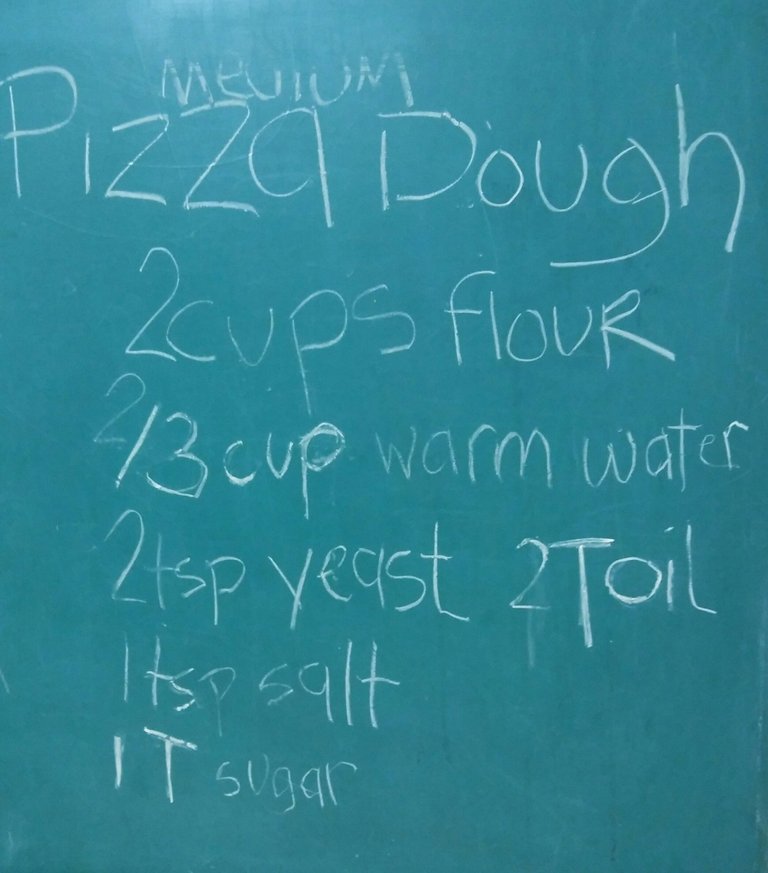 MEDIUM
Pizza Dough
2 cups flour
2/3 cup warm water
2 tsp yeast 2 T oil
1 tsp salt
1 T sugar